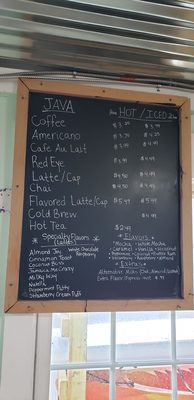 JAVA HOT / ICED
Coffee $3.25 $3.99
Americano $3.75 $4.25
Cafe Au Lait $3.99 $4.49
Red Eye $3.99 $4.49
Latte/Cap $4.50 $4.99
Chai $4.50 $4.99
Flavored Latte/Cap $5.49 $5.99
Cold Brew $4.99
Hot Tea $2.49
* Specialty Flavors *
(Lattes)
Almond Joy White Chocolate
Cinnamon Toast Raspberry
Coconut Bliss
Jamaica Me Crazy
Milky Way
Nutella
Peppermint Patty
Strawberry Cream Puff
* Flavors *
* Mocha * White Mocha
* Caramel * Vanilla * Hazelnut
* Extras *
Alternative Milks (Oak, Almond, Coconut)
Extra Flavor/Espresso shot $.99